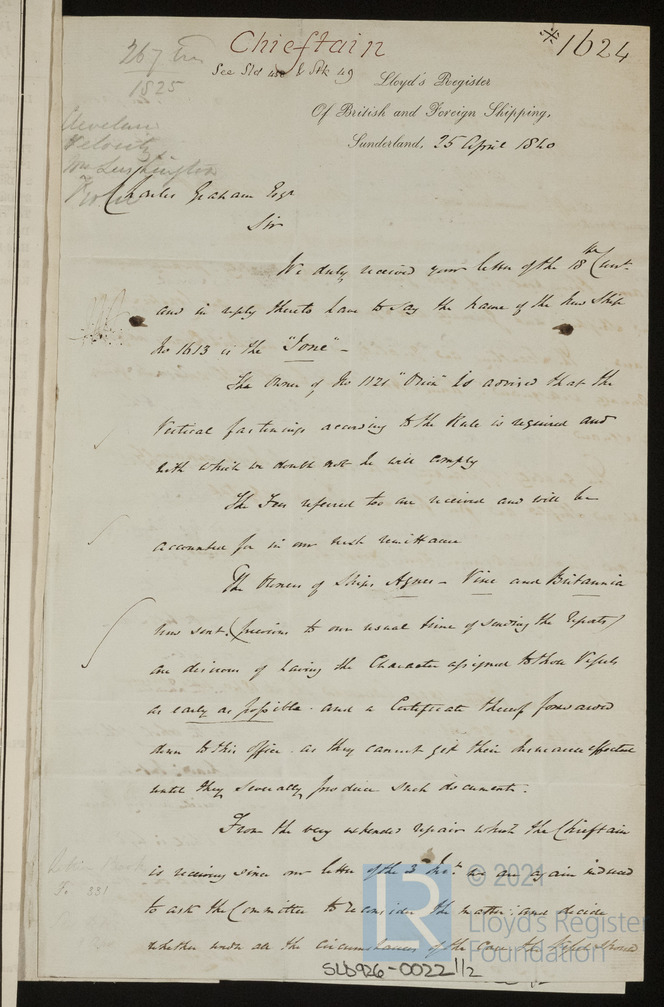 Chieftain
*1624
267
1825
See Sld 48 & Stk 49
Lloyd's Register
Of British and Foreign Shipping,
Sunderland, 25 April 1840
Cleveland
Velocity
Wm Lushington
Charles Graham Esqr
Sir
We duly received your letter of the 18th Curt.
and in reply thereto have to say the name of the new Ship
No 1613 is the "Ione" -
The Owner of No 1121 is advised that the
Vertical fastenings according to the Rule is required and
with which we doubt not he will comply
The Fees referred too are received and will be
accounted for in our next remittance
The Owners of Ships Agnes - Vine and Britannia
now sent (previous to our usual time of sending the Reports)
are desirous of having the Character assigned to those Vessels
as early as possible. and a Certificate thereof forwarded
down to this office. as they cannot get their insurance effected
until they severally produce such documents.
From the very extended repair which the Chieftain
is receiving since our letter of the 3 Inst. we are again induced
to ask the Committee to reconsider the matter. and decide
whether under all the circumstances of the Case the Vessel should
331
SLD926-0022 1/2
© 2021
LR
Lloyd's Register
Foundation